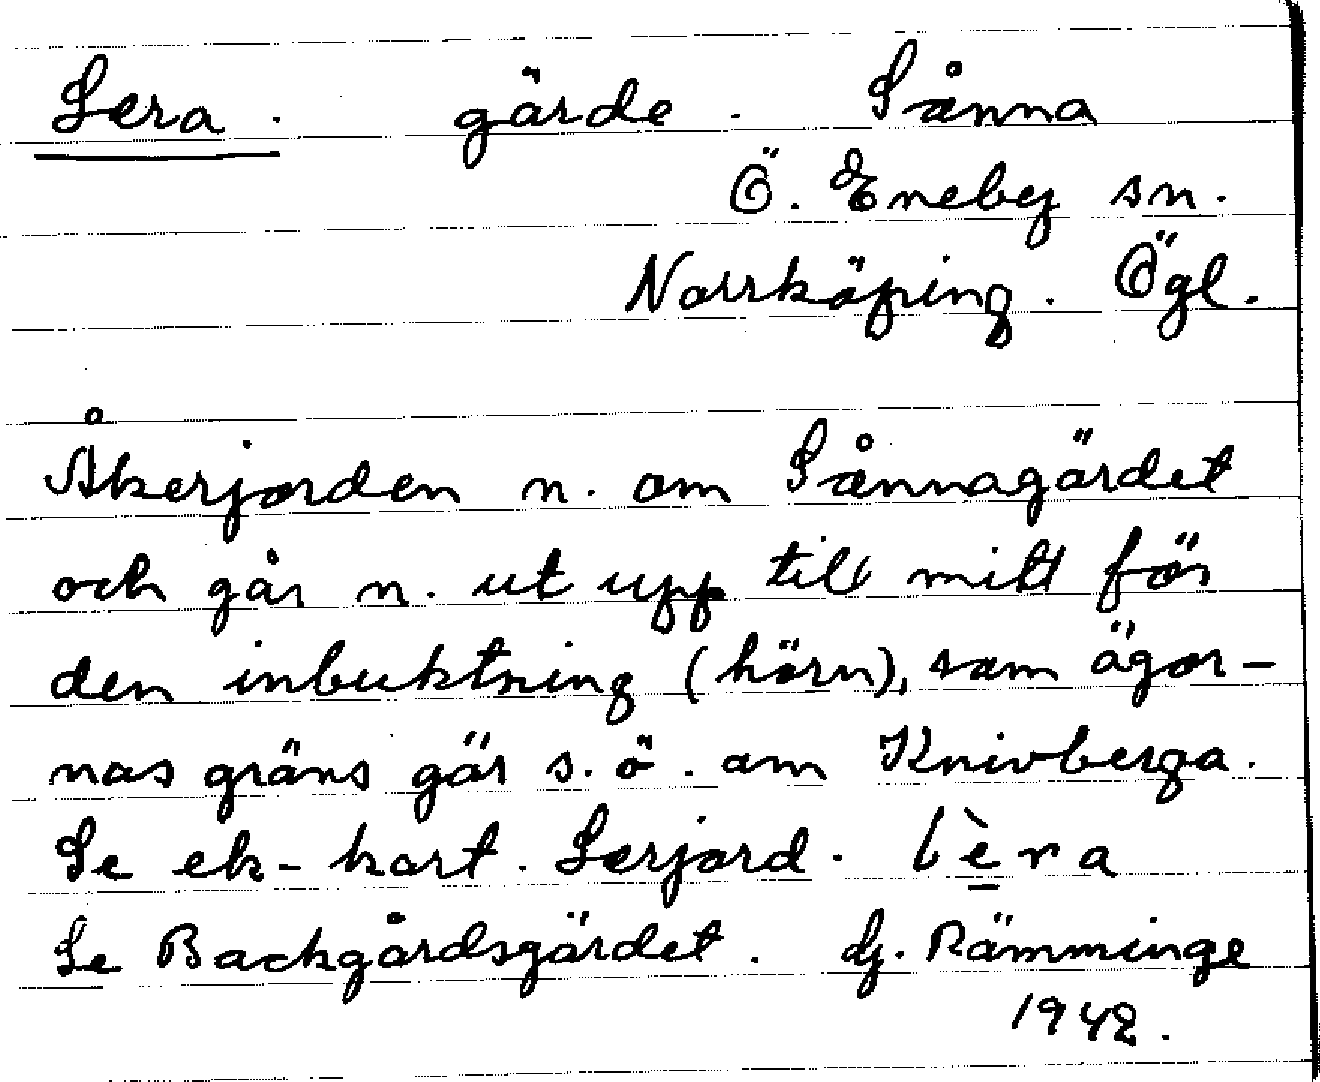 Lera. gärde. Sånna
Ö. Eneby sn.
Norrköping. Ögl.
Åkerjorden n. om Sånnagärdet
och går n. ut upp till mitt för
den inbuktning (hörn), som ägor-
nas gräns gär s. ö. om Knivberga.
Se ek-kart. Lerjord. lèra
Se Backgårdsgärdet. Rämminge
1942.